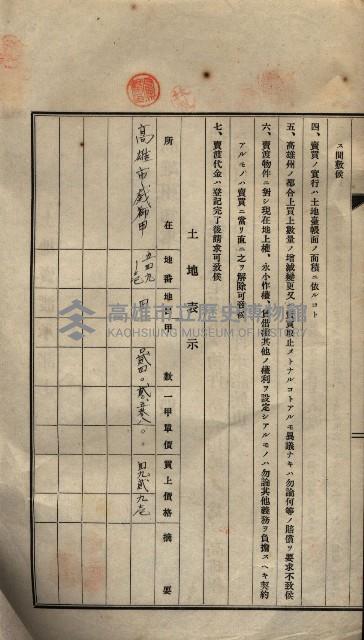 ス間敷候
四、賣買ノ實行ハ土地臺帳面ノ面積ニ依ルコト
五、高雄州ノ都合上買上數量ノ增減變更又ハ賣買取止メトナルコトアルモ異議ナキハ勿論何等ノ賠償ヲ要求不致候
六、賣渡物件ニ對シ現在地上權、永小作權、賃借權其他ノ權利ヲ設定シアルモノハ勿論其他義務ヲ負擔スヘキ契約
アルモノハ賣買ニ當リ直ニ之ヲ解除可致候
七、賣渡代金ハ登記完了後請求可致候
土地表示
所在 地番 地目 甲數 一甲單價 買上價格 摘要
高雄市戲獅甲
高雄市立歷史博物館
KAOHSIUNG MUSEUM OF HISTORY